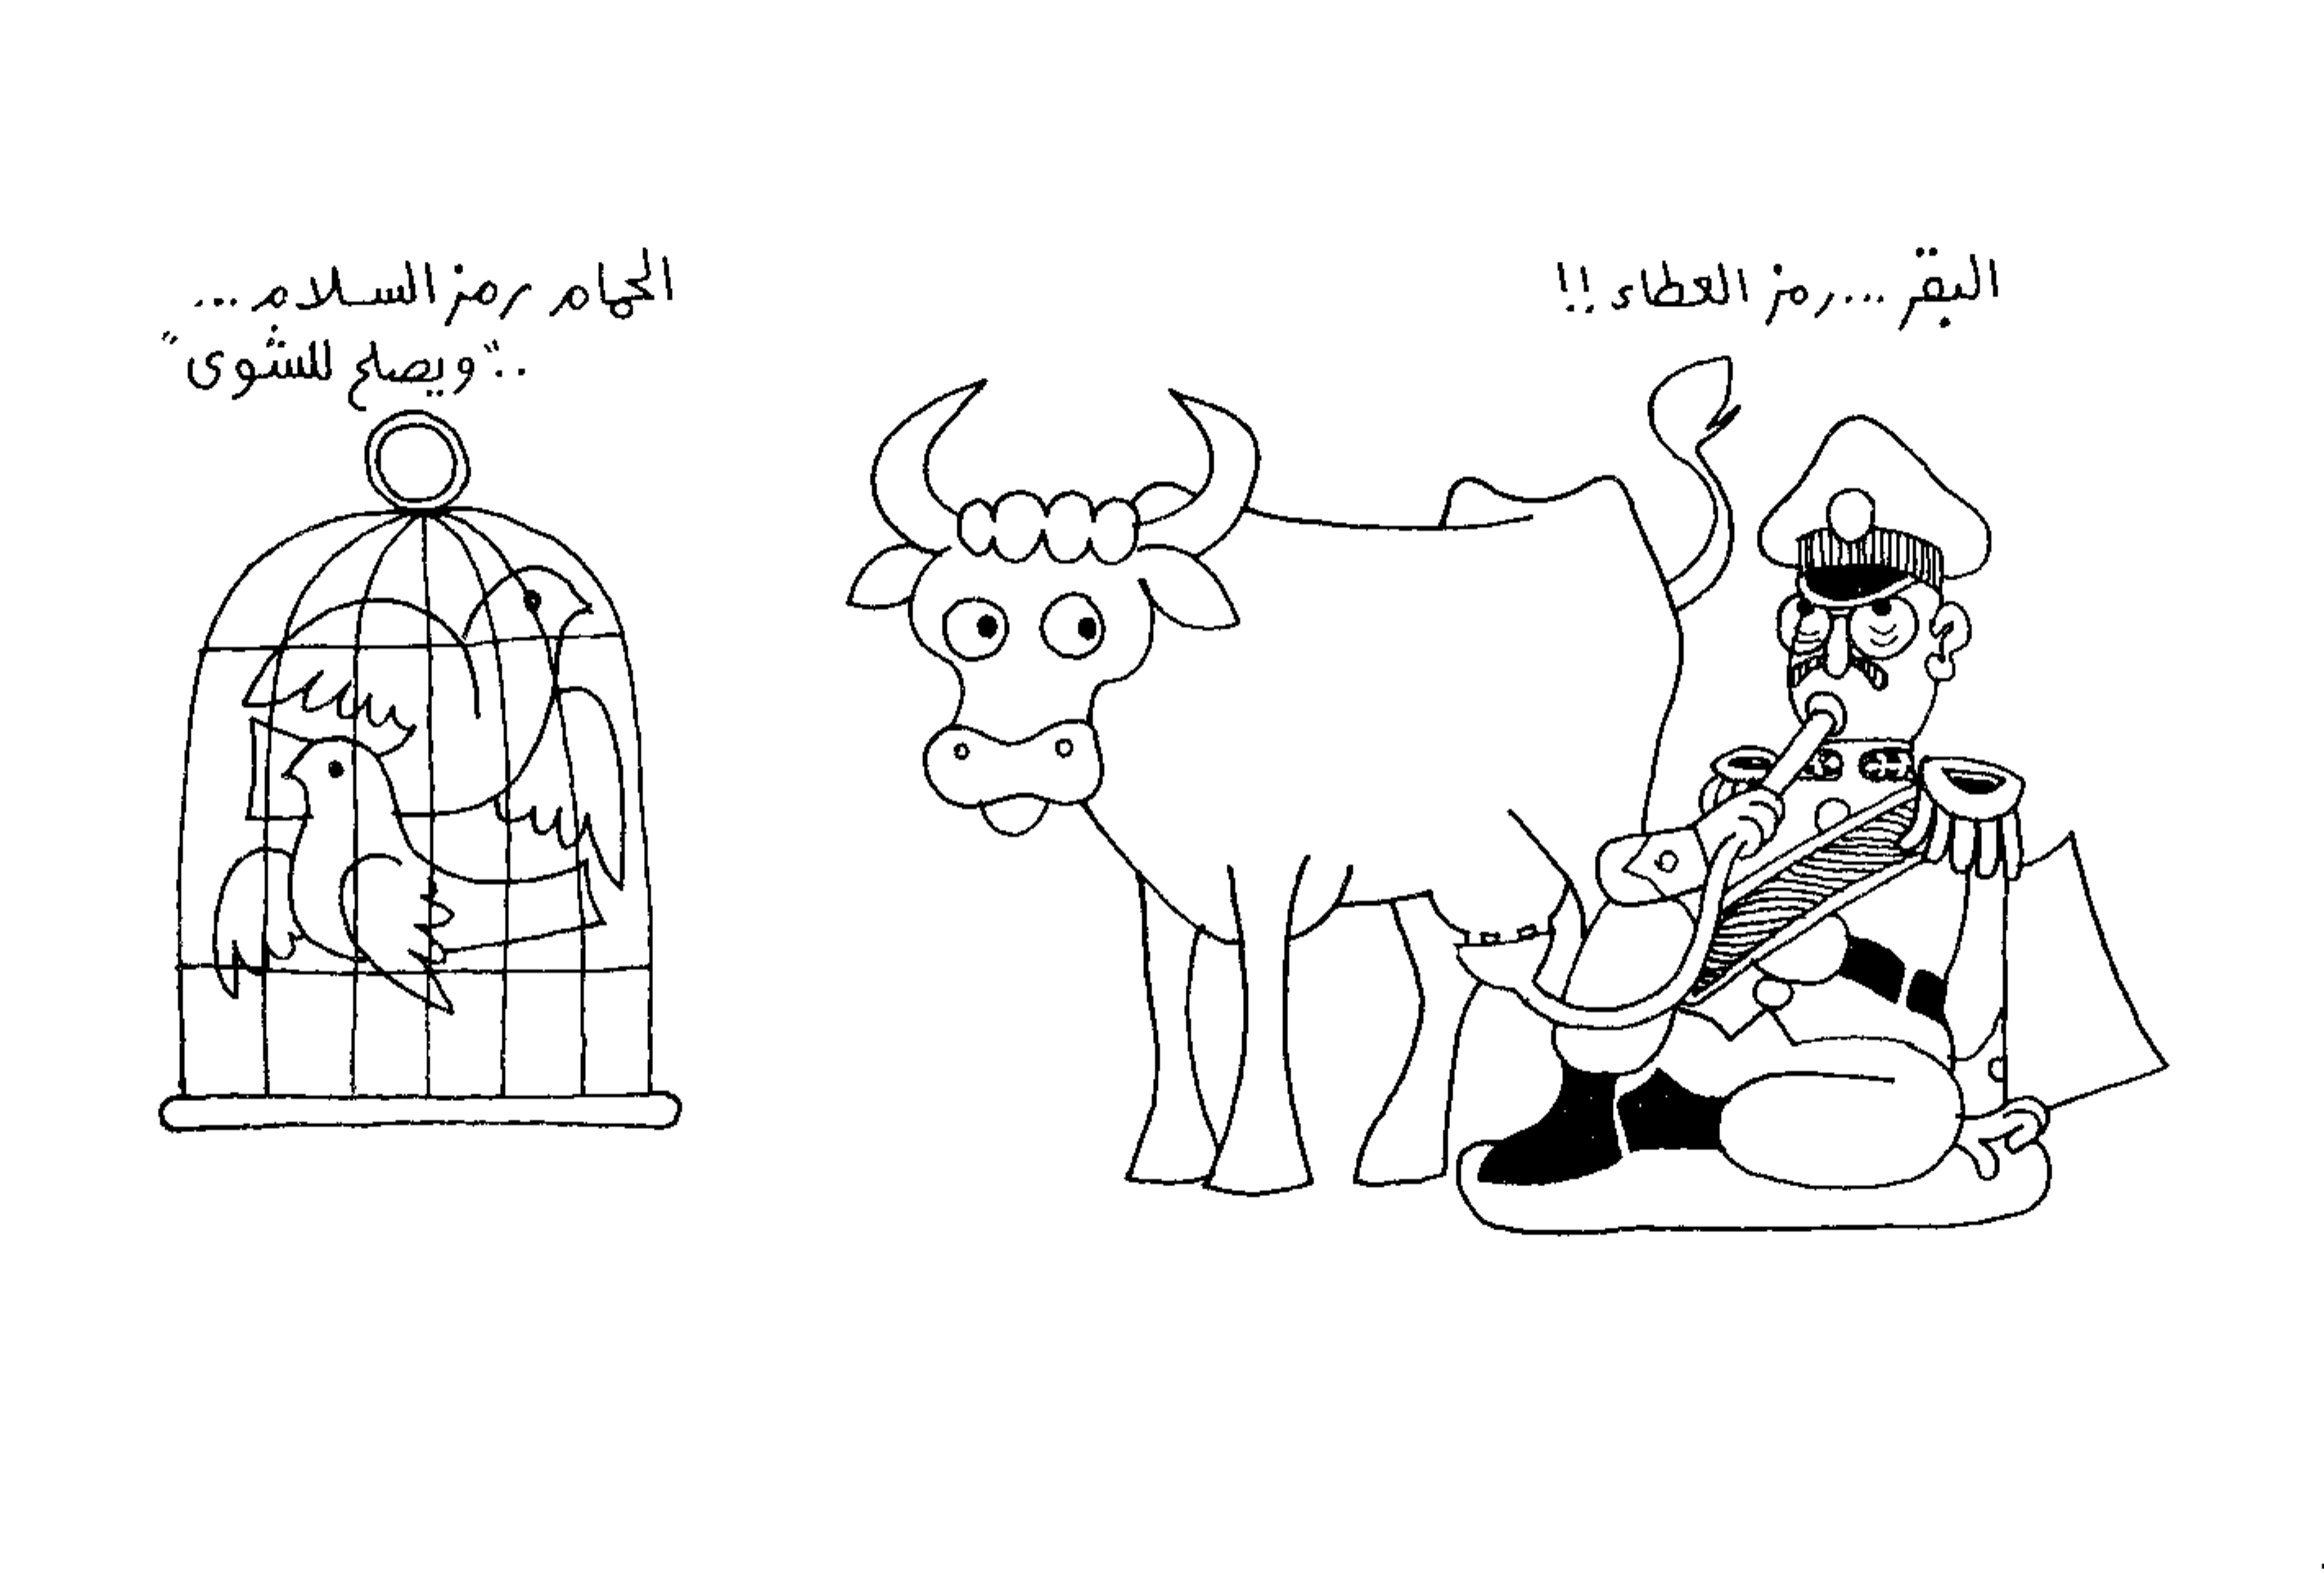 البقر...رمز العطاء!!
الحمام رمز السلام...
.."ويصلح للشوى"